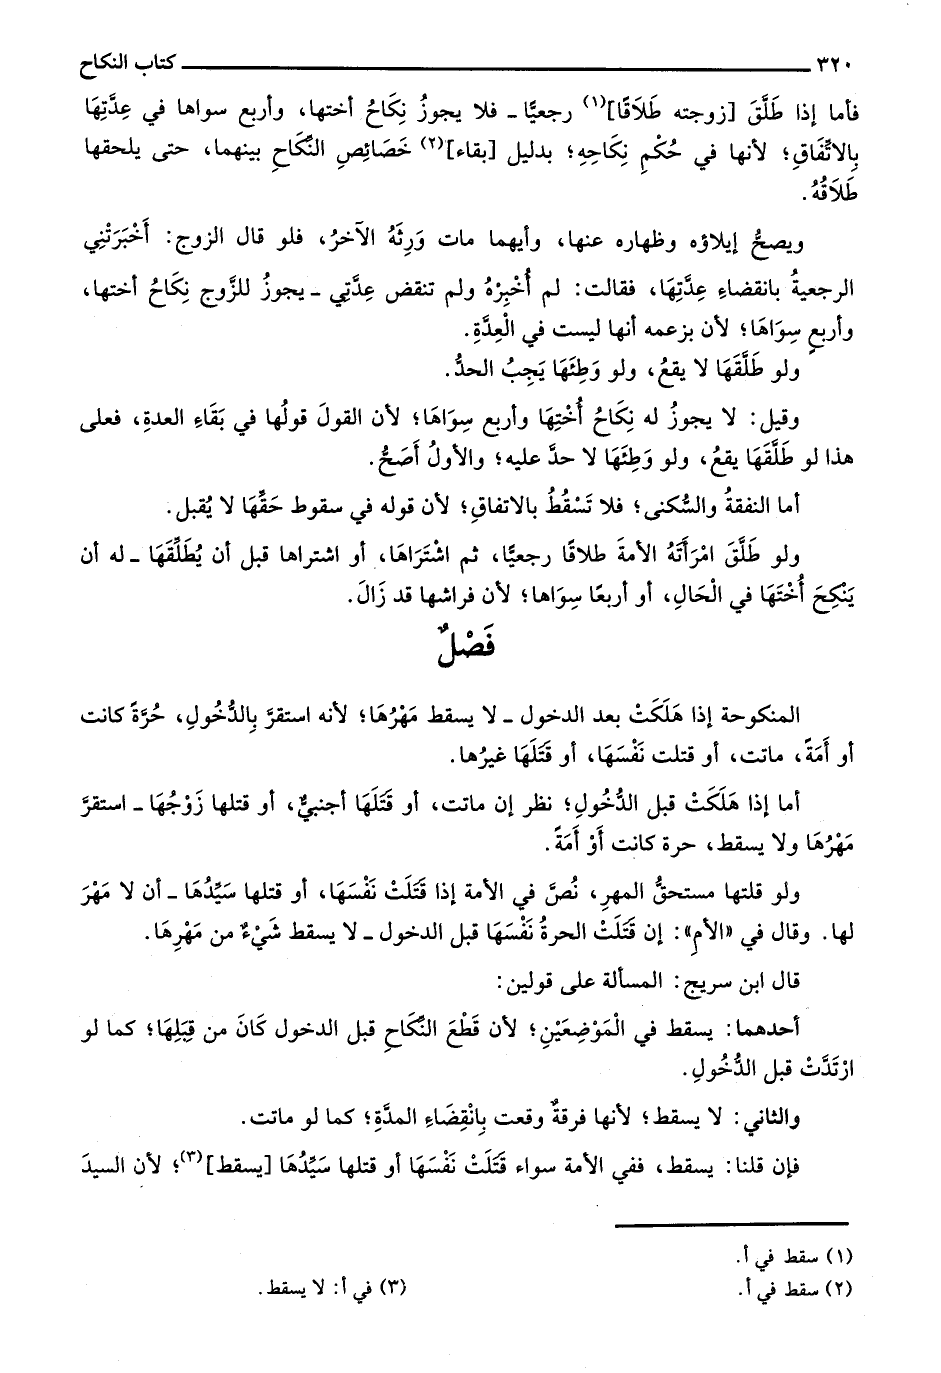 ٣٢٠ كتاب النكاح
فأما إذا طَلَّقَ [زوجته طَلَاقًا](١) رجعيًّا ـ فلا يجوزُ نِكَاحُ أختها، وأربع سواها في عِدَّتِهَا
بِالاتِّفَاقِ؛ لأنها في حُكْمِ نِكَاحِهِ؛ بدليل [بقاء](٢) خَصَائِصِ النِّكَاحِ بينهما، حتى يلحقها
طَلَاقُهُ.
ويصحُّ إيلاؤه وظهاره عنها، وأيهما مات وَرِثَهُ الآخرُ، فلو قال الزوج: أَخْبَرَتْنِي
الرجعيةُ بانقضاءِ عِدَّتِهَا، فقالت: لم أُخْبِرْهُ ولم تنقض عِدَّتِي ـ يجوزُ للزَّوج نِكَاحُ أختها،
وأربعٍ سِوَاهَا؛ لأن بزعمه أنها ليست في الْعِدَّةِ.
ولو طَلَّقَهَا لا يقعُ، ولو وَطِئَهَا يَجِبُ الحدُّ.
وقيل: لا يجوزُ له نِكَاحُ أُخْتِهَا وأربع سِوَاهَا؛ لأن القولَ قولُها في بَقَاءِ العدةِ، فعلى
هذا لو طَلَّقَهَا يقعُ، ولو وَطِئَهَا لا حدَّ عليه؛ والأولُ أَصَحُّ.
أما النفقةُ والسُّكنى؛ فلا تَسْقُطُ بالاتفاقِ؛ لأن قوله في سقوط حَقِّهَا لا يُقبل.
ولو طَلَّقَ امْرَأَتَهُ الأمةَ طلاقًا رجعيًّا، ثم اشْتَرَاهَا، أو اشتراها قبل أن يُطَلِّقَهَا ـ له أن
يَنْكِحَ أُخْتَهَا في الْحَالِ، أو أربعًا سِوَاها؛ لأن فراشها قد زَالَ.
فَصْلٌ
المنكوحة إذا هَلَكَتْ بعد الدخول ـ لا يسقط مَهْرُهَا؛ لأنه استقرَّ بِالدُّخُولِ، حُرَّةً كانت
أو أَمَةً، ماتت، أو قتلت نَفْسَهَا، أو قَتَلَهَا غيرُها.
أما إذا هَلَكَتْ قبل الدُّخُولِ؛ نظر إن ماتت، أو قَتَلَهَا أجنبيٌّ، أو قتلها زَوْجُهَا ـ استقرَّ
مَهْرُهَا ولا يسقط، حرة كانت أَوْ أَمَةً.
ولو قلتها مستحقُّ المهرِ، نُصَّ في الأمة إذا قَتَلَتْ نَفْسَهَا، أو قتلها سَيِّدُهَا ـ أن لا مَهْرَ
لها. وقال في «الأمِ»: إن قَتَلَتْ الحرةُ نَفْسَهَا قبل الدخول ـ لا يسقط شَيْءٌ من مَهْرِهَا.
قال ابن سريج: المسألة على قولين:
أحدهما: يسقط في الْمَوْضِعَيْنِ؛ لأن قَطْعَ النِّكَاحِ قبل الدخول كَانَ من قِبَلِهَا؛ كما لو
ارْتَدَّتْ قبل الدُّخُولِ.
والثاني: لا يسقط؛ لأنها فرقةٌ وقعت بِانْقِضَاءِ المدَّةِ؛ كما لو ماتت.
فإن قلنا: يسقط، ففي الأمة سواء قَتَلَتْ نَفْسَهَا أو قتلها سَيِّدُهَا [يسقط](٣)؛ لأن السيدَ
(١) سقط في أ.
(٢) سقط في أ. (٣) في أ: لا يسقط.